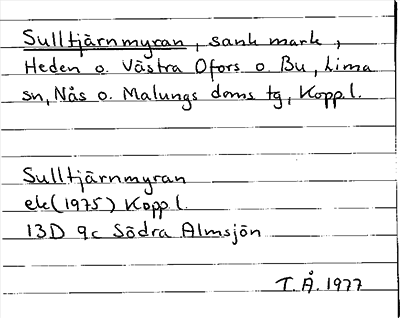 Sulltjärnmyran, sank mark,
Heden o. Västra Ofors o. Bu, Lima
sn, Nås o. Malungs doms tg, Kopp.l.
Sulltjärnmyran
ek (1975) Kopp l.
13D 9c Södra Almsjön
T.Å. 1977